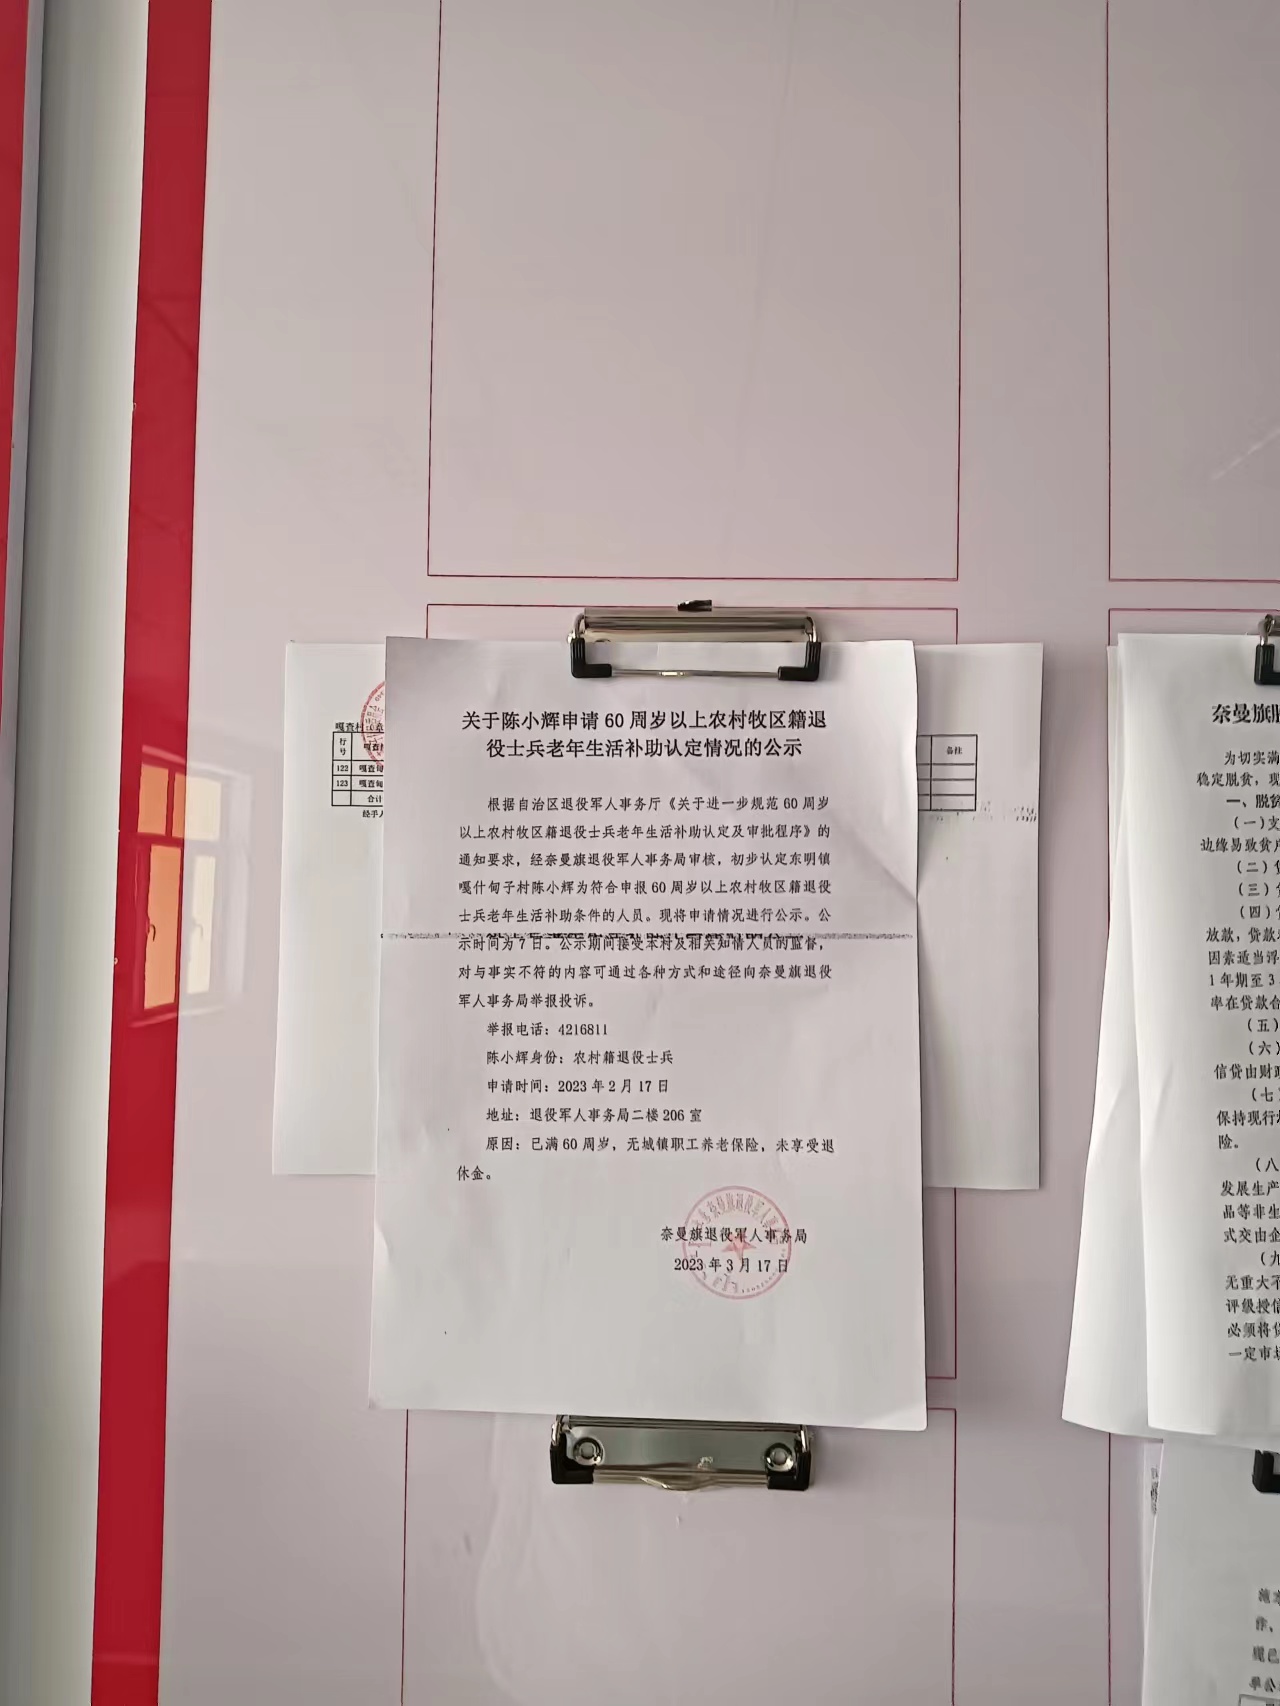 关于陈小辉申请 60 周岁以上农村牧区籍退
役士兵老年生活补助认定情况的公示
根据自治区退役军人事务厅《关于进一步规范 60 周岁
以上农村牧区籍退役士兵老年生活补助认定及审批程序》的
通知要求，经奈曼旗退役军人事务局审核，初步认定东明镇
嘎什甸子村陈小辉为符合申报 60 周岁以上农村牧区籍退役
士兵老年生活补助条件的人员。现将申请情况进行公示。公
示时间为 7 日。公示期间接受本村及相关知情人员的监督，
对与事实不符的内容可通过各种方式和途径向奈曼旗退役
军人事务局举报投诉。
举报电话：4216811
陈小辉身份：农村籍退役士兵
申请时间：2023 年 2 月 17 日
地址：退役军人事务局二楼 206 室
原因：已满 60 周岁，无城镇职工养老保险，未享受退
休金。
奈曼旗退役军人事务局
2023 年 3 月 17 日
嘎查村
行号
嘎查
备注
122 嘎查甸
123 嘎查甸
合计
经手人
奈曼旗
为切实满
稳定脱贫，现
一、脱贫
（一）支
边缘易致贫户
（二）贷
（三）
（四）
放款，贷款
因素适当浮
1 年期至 3
率在贷款合
（五）
（六）
信贷由财政
（七
保持现行
险。
（八
发展生产
品等非生
式交由企
（九
无重大不
评级授信
必须将贷
一定市场